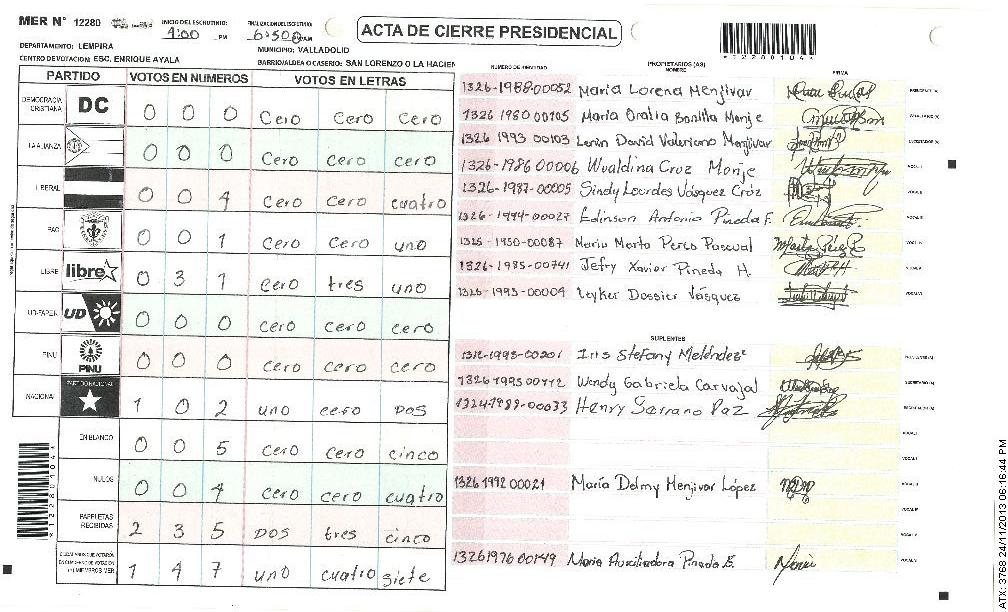 MER N° 12280
INICIO DEL ESCRUTINIO: 4:00 PM
FINALIZACION DEL ESCRUTINIO: 6:50
ACTA DE CIERRE PRESIDENCIAL
*12280104*
DEPARTAMENTO: LEMPIRA
MUNICIPIO: VALLADOLID
CENTRO DE VOTACION: ESC. ENRIQUE AYALA
BARRIO/ALDEA O CASERIO: SAN LORENZO O LA HACIEN
PARTIDO VOTOS EN NUMEROS VOTOS EN LETRAS
DEMOCRACIA CRISTIANA DC 0 0 0 Cero Cero Cero
LA ALIANZA 0 0 0 Cero cero cero
LIBERAL 0 0 4 Cero cero cuatro
PAC 0 0 1 Cero Cero uno
LIBRE libre 0 3 1 Cero tres uno
UD-FAPER UD 0 0 0 cero cero cero
PINU PINU 0 0 0 cero cero cero
NACIONAL PARTIDO NACIONAL 1 0 2 uno cero DOS
EN BLANCO 0 0 5 cero cero cinco
NULOS 0 0 4 cero cero cuatro
PAPELETAS RECIBIDAS 2 3 5 DOS tres cinco
(*) MIEMBROS MER 1 4 7 uno cuatro siete
*12280104*
NUMERO DE IDENTIDAD PROPIETARIOS (AS) NOMBRE FIRMA
1326-1988-00052 María Lorena Menjivar
1326 1980 00105 María Oralia Bonilla Monje
1326 1993 00103 Lenin David Valeriano Menjivar
1326-1986 00006 Wualdina Cruz Monje
1326-1987-00005 Sindy Lourdes Vásquez Cruz
1326-1994-00027 Edinson Antonio Pineda F.
1326-1950-00087 Maria Marta Perez Pascual
1326-1985-00741 Jefry Xavier Pineda H.
1326-1993-00009 Leyker Dossier Vásquez
SUPLENTES
1312-1993-00201 Iris Stefany Meléndez
1326 1995 00112 Wendy Gabriela Carvajal
1324-1989-00033 Henry Serrano Paz
1326 1992 00021 María Delmy Menjivar López
1326 1976 00149 Maria Auxiliadora Pineda
ATX: 3768 24/11/2013 06:16:44 PM